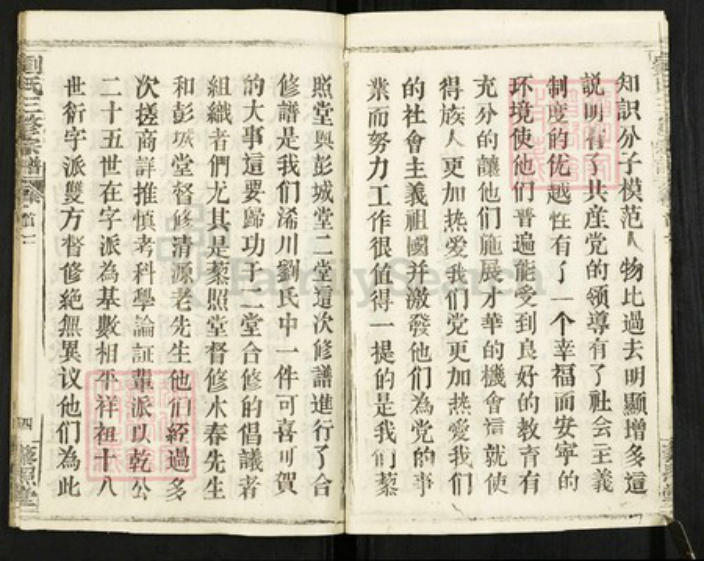 知识分子模范人物比過去明顯增多這
説明有了共産党的领導有了社会主義
制度的优越性有了一个幸福而安寧的
环境使他们普遍能受到良好的教育有
充分的讓他们施展才華的機會這就使
得族人更加热爱我们党更加热爱我们
的社會主義祖國并激發他们為党的事
業而努力工作很值得一提的是我们藜
照堂與彭城堂二堂這次修譜進行了合
修譜是我们浠川劉氏中一件可喜可賀
的大事這要歸功于二堂合修的倡議者
組織者們尤其是藜照堂督修木春先生
和彭城堂督修清源老先生他们經過多
次搓商詳推慎考科學論証輩派以乾公
二十五世在字派為基數相平祥祖十八
世衍字派雙方督修絶無異议他们為此
劉氏三修宗譜
首一
四
藜照堂
FamilySearch